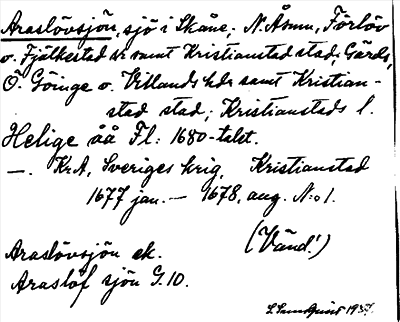 Araslövsjön, sjö i Skåne; N. Åsum, Förlöv
o. Fjälkestad sr samt Kristianstad stad, Gärds,
Ö. Göinge o. Villands hdr samt Kristian-
stad stad; Kristianstads l.
Helige åå Fl: 1680-talet.
—. KrA, Sveriges krig, Kristianstad
1677 jan. — 1678, aug. N:o 1.
(Vänd!)
Araslövsjön ek.
Araslöf sjön G.10.
L. Sundquist